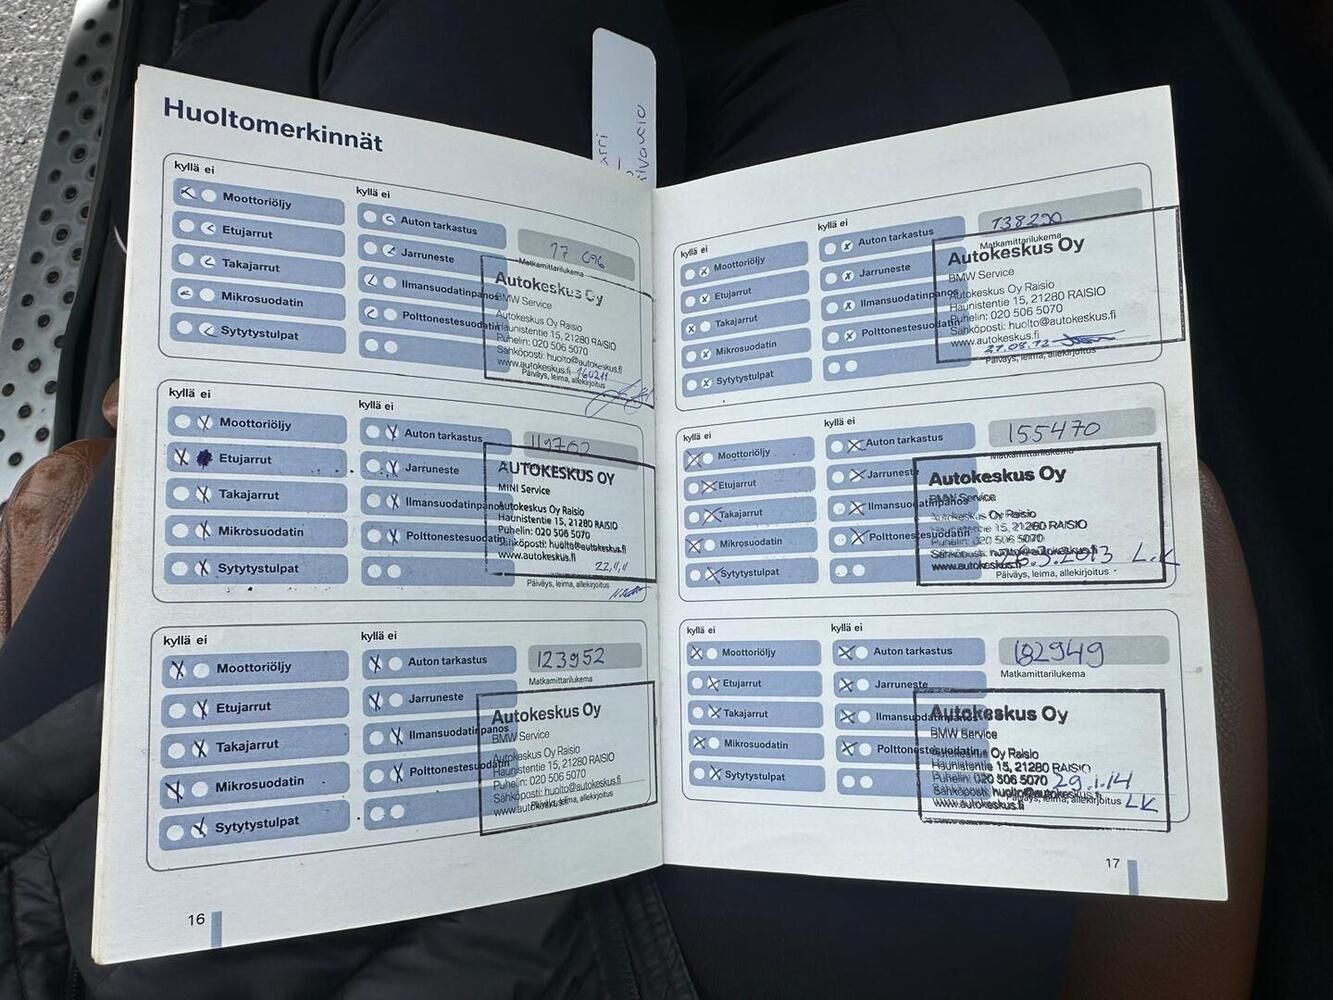 Huoltomerkinnät
kyllä ei
Moottoriöljy
Etujarrut
Takajarrut
Mikrosuodatin
Sytytystulpat
kyllä ei
Auton tarkastus
Jarruneste
Ilmansuodatinpanos
Polttonestesuodatin
77 096
Matkamittarilukema
Autokeskus Oy
BMW Service
Autokeskus Oy Raisio
Haunistentie 15, 21280 RAISIO
Puhelin: 020 506 5070
Sähköposti: huolto@autokeskus.fi
www.autokeskus.fi
160211
Päiväys, leima, allekirjoitus
kyllä ei
Moottoriöljy
Etujarrut
Takajarrut
Mikrosuodatin
Sytytystulpat
kyllä ei
Auton tarkastus
Jarruneste
Ilmansuodatinpanos
Polttonestesuodatin
119702
AUTOKESKUS OY
MINI Service
Autokeskus Oy Raisio
Haunistentie 15, 21280 RAISIO
Puhelin: 020 506 5070
Sähköposti: huolto@autokeskus.fi
www.autokeskus.fi
22.11.11
Päiväys, leima, allekirjoitus
kyllä ei
Moottoriöljy
Etujarrut
Takajarrut
Mikrosuodatin
Sytytystulpat
kyllä ei
Auton tarkastus
Jarruneste
Ilmansuodatinpanos
Polttonestesuodatin
123952
Matkamittarilukema
Autokeskus Oy
BMW Service
Autokeskus Oy Raisio
Haunistentie 15, 21280 RAISIO
Puhelin: 020 506 5070
Sähköposti: huolto@autokeskus.fi
www.autokeskus.fi
16
kyllä ei
Moottoriöljy
Etujarrut
Takajarrut
Mikrosuodatin
Sytytystulpat
kyllä ei
Auton tarkastus
Jarruneste
Ilmansuodatinpanos
Polttonestesuodatin
138290
Matkamittarilukema
Autokeskus Oy
BMW Service
Autokeskus Oy Raisio
Haunistentie 15, 21280 RAISIO
Puhelin: 020 506 5070
Sähköposti: huolto@autokeskus.fi
www.autokeskus.fi
27.08.12
Päiväys, leima, allekirjoitus
kyllä ei
Moottoriöljy
Etujarrut
Takajarrut
Mikrosuodatin
Sytytystulpat
kyllä ei
Auton tarkastus
Jarruneste
Ilmansuodatinpanos
Polttonestesuodatin
155470
Autokeskus Oy
BMW Service
Autokeskus Oy Raisio
15, 21280 RAISIO
Puhelin: 020 506 5070
Sähköposti: huolto@autokeskus.fi
www.autokeskus.fi
3.2013 L.K
Päiväys, leima, allekirjoitus
kyllä ei
Moottoriöljy
Etujarrut
Takajarrut
Mikrosuodatin
Sytytystulpat
kyllä ei
Auton tarkastus
Jarruneste
Ilmansuodatinpanos
Polttonestesuodatin
182949
Matkamittarilukema
Autokeskus Oy
BMW Service
Autokeskus Oy Raisio
Haunistentie 15, 21280 RAISIO
Puhelin: 020 506 5070
29.1.14
Sähköposti: huolto@autokeskus.fi
Päiväys, leima, allekirjoitus
LK
www.autokeskus.fi
17